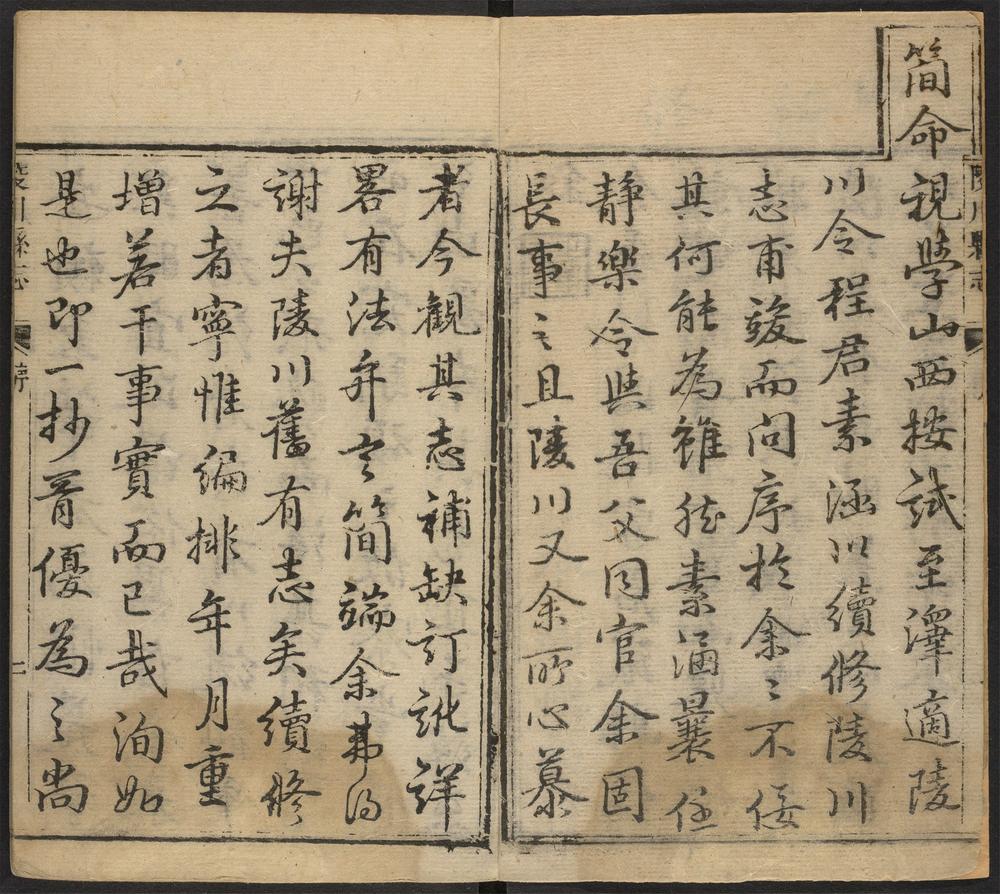 簡命視學山西按試至澤適陵
川令程君素涵以續修陵川
志甫竣而問序於余〻不佞
其何能為雖然素涵曩任
靜樂令與吾父同官余固
長事之且陵川又余所心慕
者今觀其志補缺訂訛詳
畧有法弁言簡端余弗得
謝夫陵川舊有志矣續修
之者寧惟編排年月重
增若干事實而已哉洵如
是也即一抄胥優為之尚
陵川縣志
序
陵川縣志